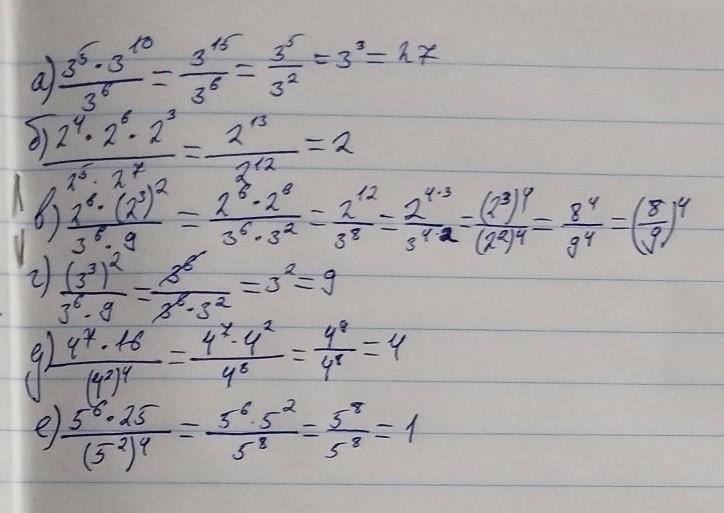 а) (3⁵ · 3¹⁰)/3⁶ = 3¹⁵/3⁶ = 3⁵/3² = 3³ = 27
б) (2⁴ · 2⁶ · 2³)/(2⁵ · 2⁷) = 2¹³/2¹² = 2
в) (2⁶ · (2³)²)/(3⁶ · 9) = (2⁶ · 2⁶)/(3⁶ · 3²) = 2¹²/3⁸ = 2⁴·³/3⁴·² = (2³)⁴/(2²)⁴ = 8⁴/9⁴ = (8/9)⁴
г) (3³)²/(3⁶ · 9) = 3⁶/(3⁶ · 3²) = 3² = 9
д) (4⁷ · 16)/(4²)⁴ = (4⁷ · 4²)/4⁸ = 4⁹/4⁸ = 4
е) (5⁶ · 25)/(5²)⁴ = (5⁶ · 5²)/5⁸ = 5⁸/5⁸ = 1